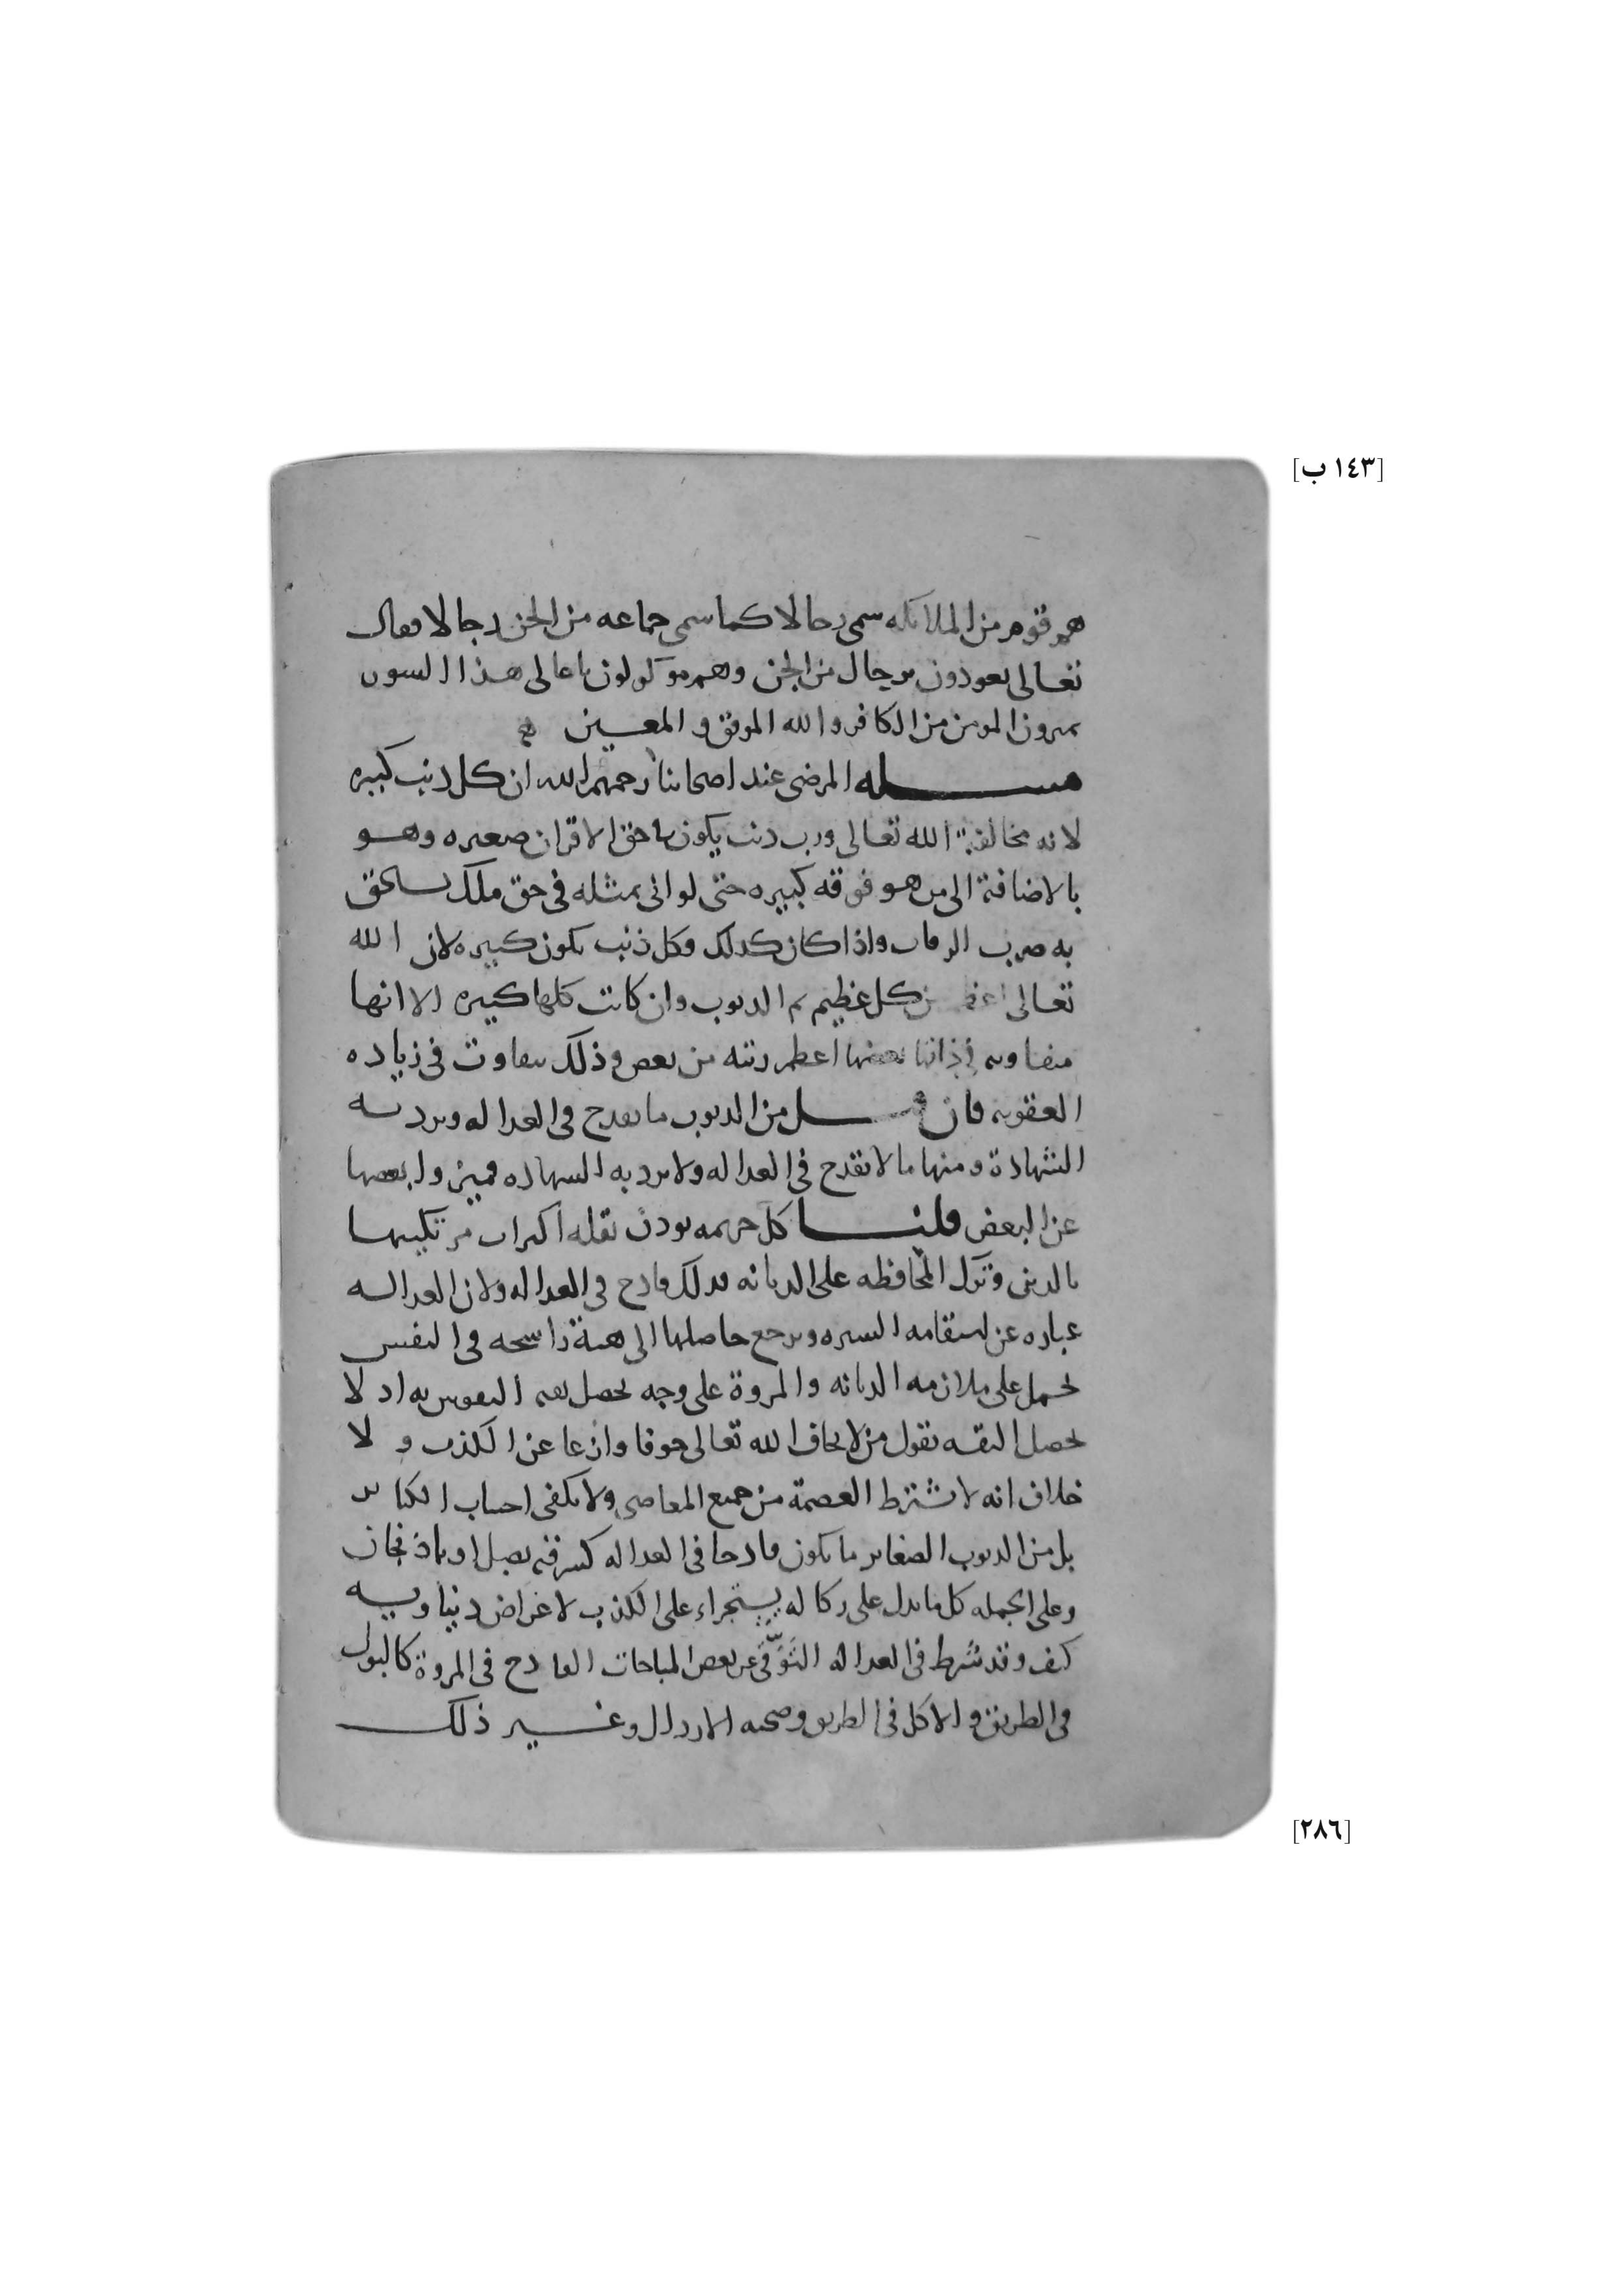 [١٤٣ ب]
هم قوم من الملائكه سمى رجالا كما سمى جماعه من الجن رجالا فقال
تعالى يعوذون برجال من الجن وهم موكولون باعالى هذا السور
يميزون المومن من الكافر والله الموفق والمعين
مسله المرضى عند اصحابنا رحمهم الله ان كل ذنب كبيره
لانه مخالفة الله تعالى ورب ذنب يكون فى حق الاقران صغيره وهو
بالاضافة الى من هو فوقه كبيره حتى لو اتى بمثله فى حق ملك يستحق
به ضرب الرقاب واذا كان كذلك وكل ذنب يكون كبيره لان الله
تعالى اعظم من كل عظيم ثم الذنوب وان كانت كلها كبيره الا انها
متفاوته فى ذاتها بعضها اعظم رتبه من بعض وذلك يتفاوت فى زياده
العقوبه فان قيل من الذنوب ما يقدح فى العداله ويرد به
الشهادة ومنها ما لا يقدح فى العداله ولا يرد به الشهاده فميزوا بعضها
عن البعض قلنا كل جريمه توذن بقله اكتراث مرتكبها
بالدين وترك المحافظه على الديانه فذلك قادح فى العداله ولان العداله
عباره عن استقامه السيره ويرجع حاصلها الى هيئة راسخه فى النفس
تحمل على ملازمه الديانه والمروة على وجه يحصل ثقه النفوس به اذ لا
يحصل الثقه بقول من لا يخاف الله تعالى خوفا وازعا عن الكذب و لا
خلاف انه لا تشترط العصمة من جميع المعاصى ولا يكفى اجتناب الكبائر
بل من الذنوب الصغاير ما يكون قادحا فى العداله كسرقه بصل او باذنجان
وعلى الجمله كل ما يدل على ركاكه يستجراء على الكذب لاغراض دنياويه
كيف وقد شرط فى العداله التَّوَقّى عن بعض المباحات القادح فى المروة كالبول
فى الطريق والاكل فى الطريق وصحبه الارذال وغير ذلك
[٢٨٦]